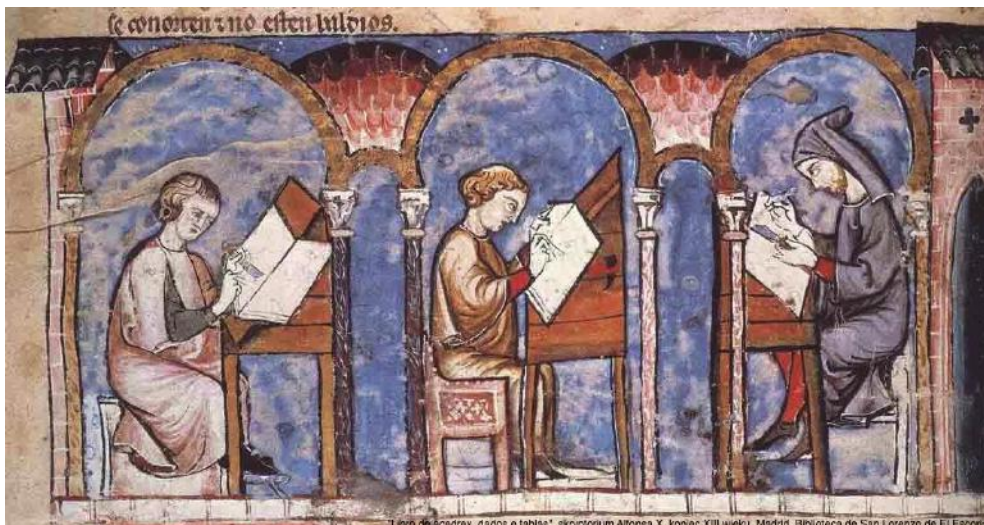 se conorten ⁊ no esten baldios.
"Libro de acedrex, dados e tablas", skryptorium Alfonsa X, koniec XIII wieku, Madrid, Biblioteca de San Lorenzo de El